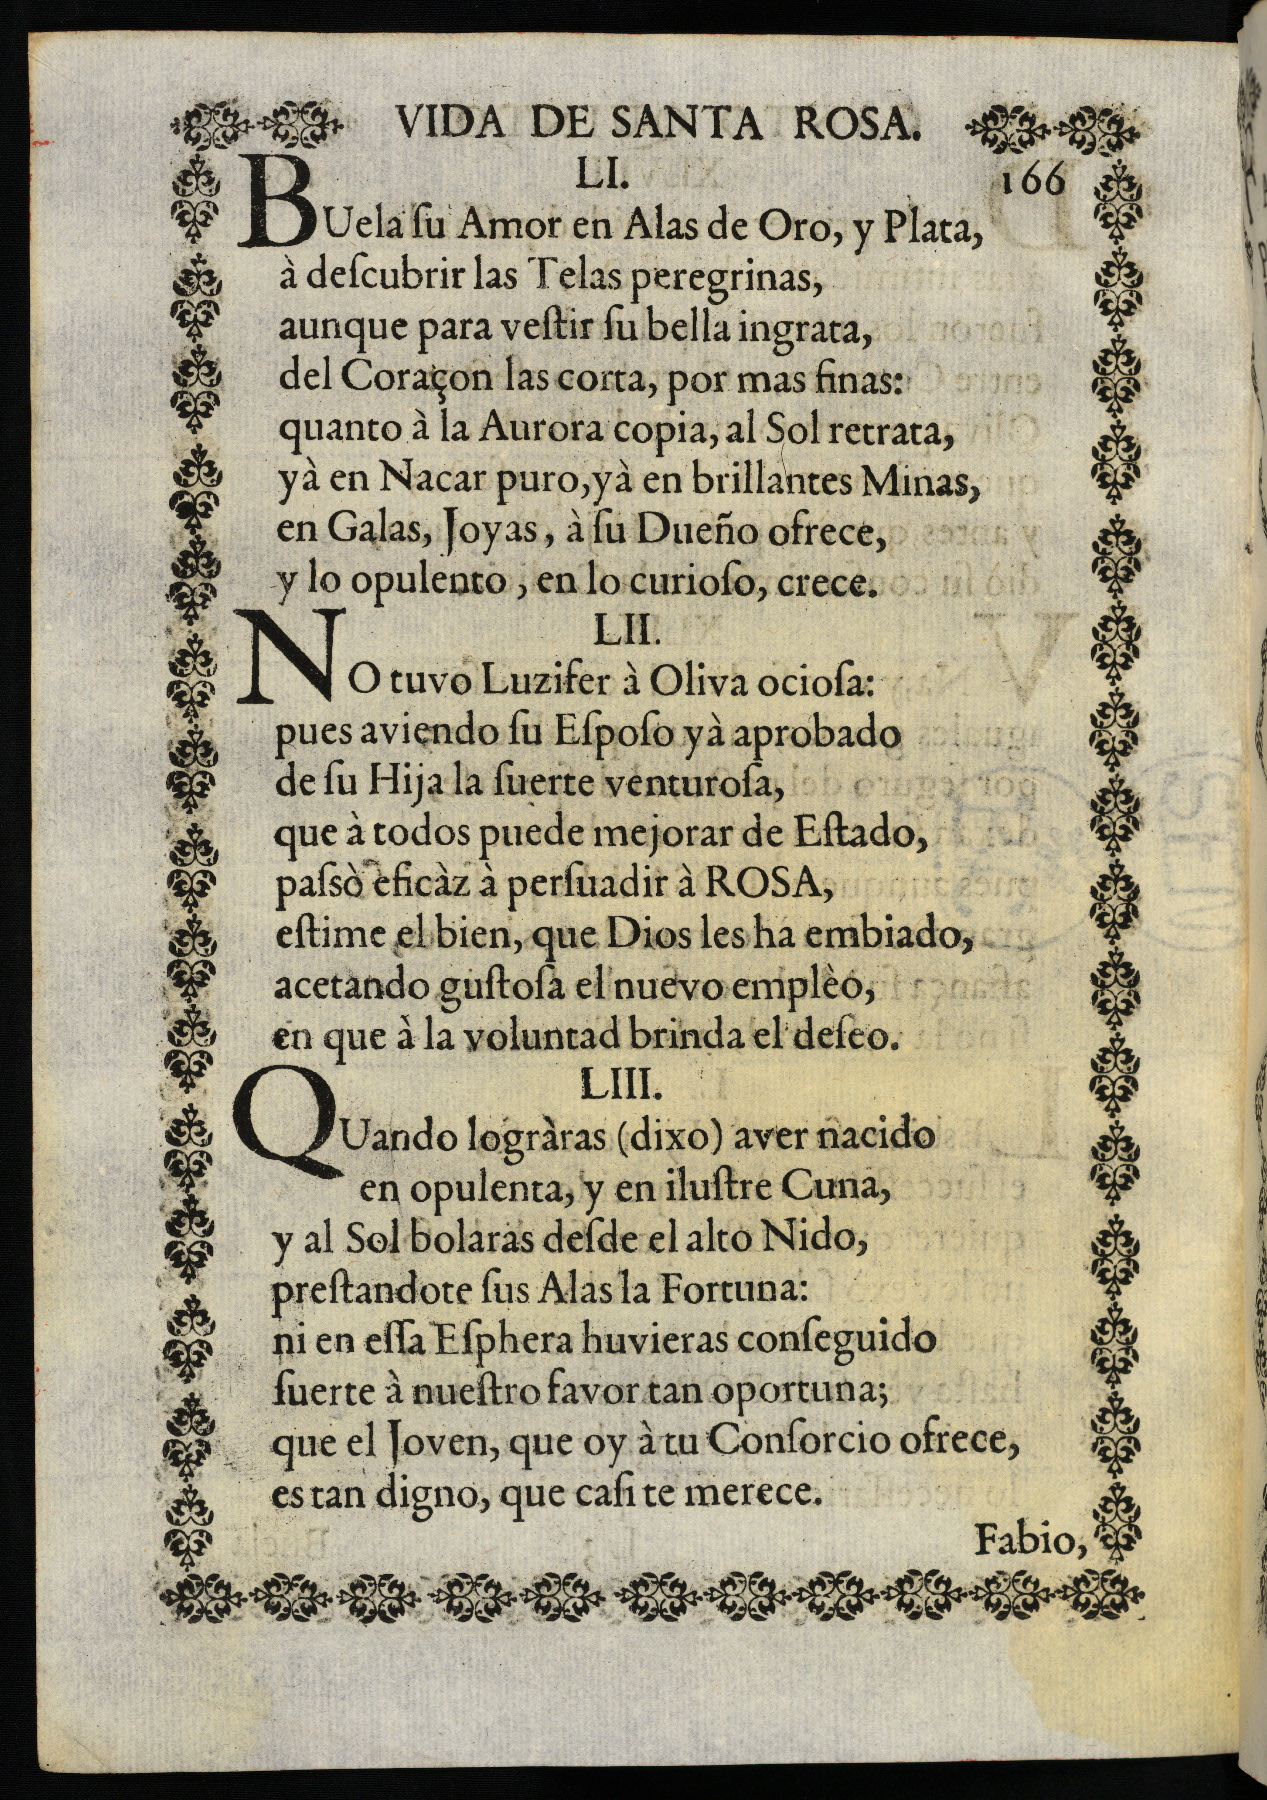 VIDA DE SANTA ROSA.
LI.
166
BUela ſu Amor en Alas de Oro, y Plata,
à deſcubrir las Telas peregrinas,
aunque para veſtir ſu bella ingrata,
del Coraçon las corta, por mas finas:
quanto à la Aurora copia, al Sol retrata,
yà en Nacar puro, yà en brillantes Minas,
en Galas, Joyas, à ſu Dueño ofrece,
y lo opulento, en lo curioſo, crece.
LII.
NO tuvo Luzifer à Oliva ocioſa:
pues aviendo ſu Eſpoſo yà aprobado
de ſu Hija la ſuerte venturoſa,
que à todos puede mejorar de Eſtado,
paſsò eficàz à perſuadir à ROSA,
eſtime el bien, que Dios les ha embiado,
acetando guſtoſa el nuevo emplèo,
en que à la voluntad brinda el deſeo.
LIII.
QUando logràras (dixo) aver nacido
en opulenta, y en iluſtre Cuna,
y al Sol bolaras deſde el alto Nido,
preſtandote ſus Alas la Fortuna:
ni en eſſa Eſphera huvieras conſeguido
ſuerte à nueſtro favor tan oportuna;
que el Joven, que oy à tu Conſorcio ofrece,
es tan digno, que caſi te merece.
Fabio,